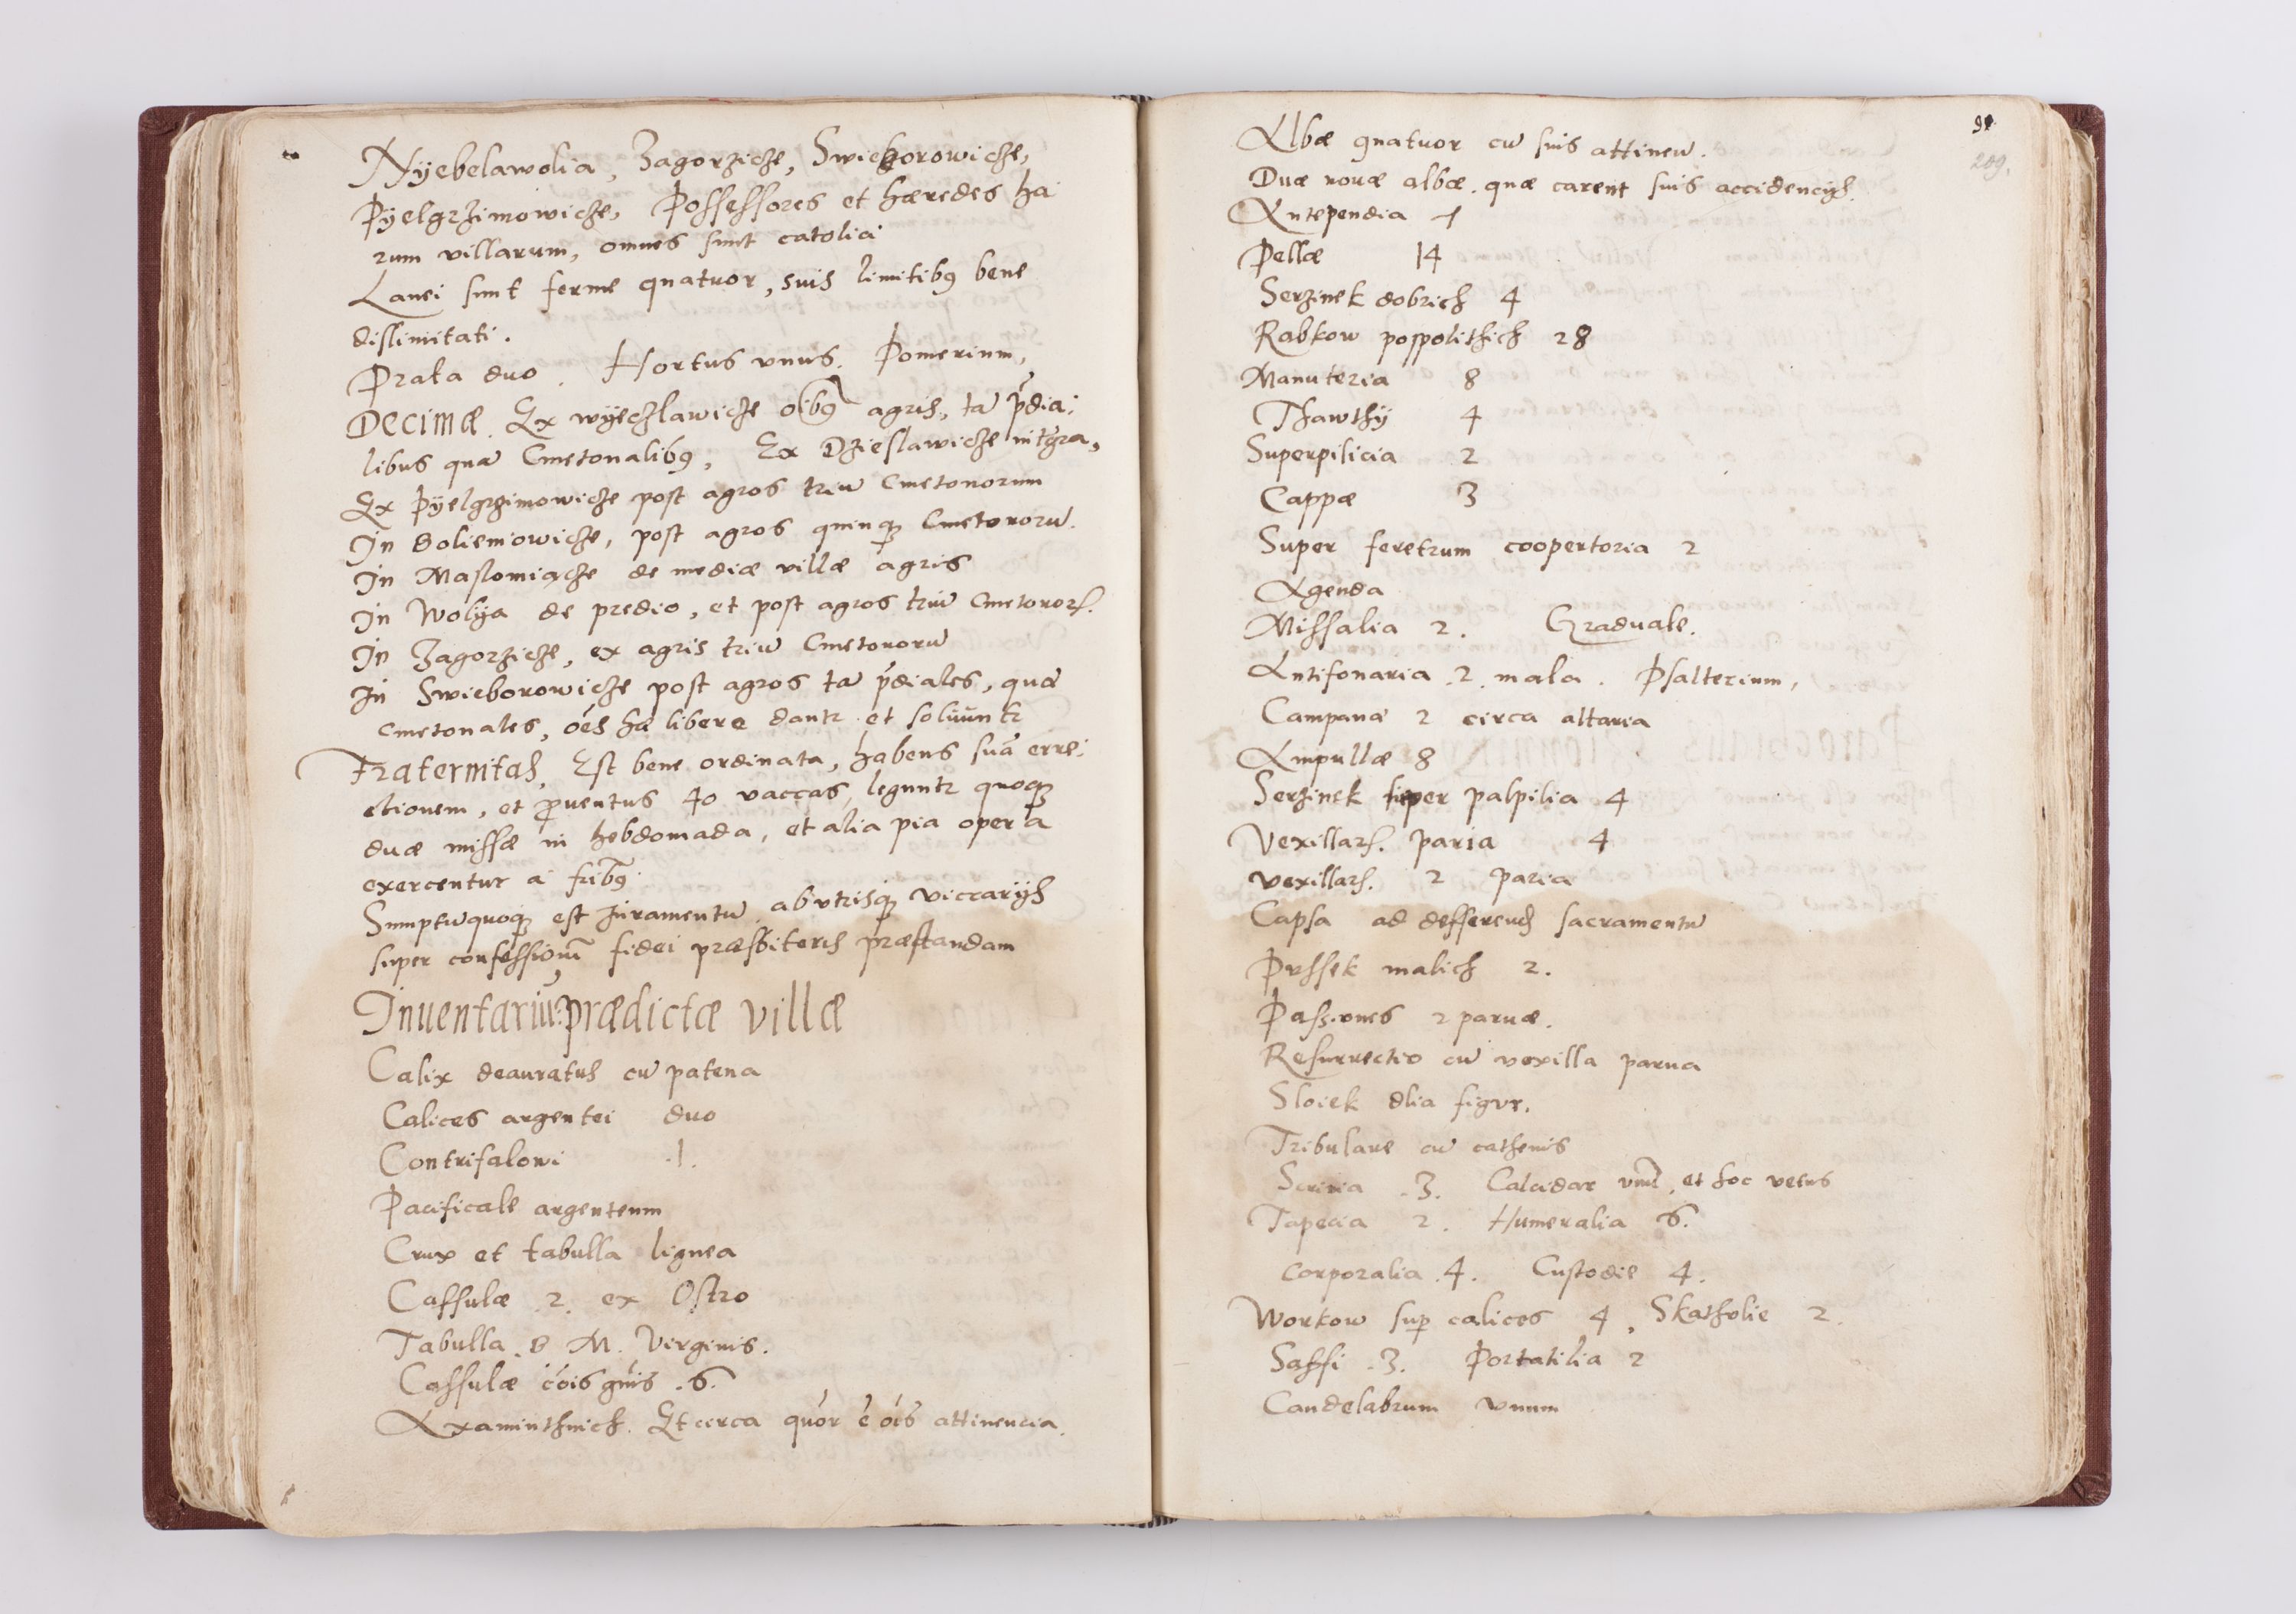 Nyebelawolia, Zagorziche, Swieborowiche,
Pyelgrzimowiche, Possessores et hæredes ha
rum villarum, omnes sunt catolici
Lanei sunt ferme quatuor, suis limitibꝰ bene
dislimitati.
Prata duo. Hortus vnus. Pomerium,
Decimæ. Ex wyechlawiche oibꝰ agris, tā p̄dia:
libus quā Cmetonalibꝰ, Ex Dzieslawiche integra,
Ex Pyelgrzimowiche post agros triū Cmetonorum
In Boliemowiche, post agros quinqꝫ Cmetonorū.
In Maslomiache de mediæ villæ agris
In Wolya de predio, et post agros triū Cmetonorꝝ.
In Zagorziche, ex agris triū Cmetonorū
In Swieborowiche post agros tā p̄diales, quā
cmetonales, oēs hæ libere dantr et soluuntr
Fraternitas, Est bene ordinata, habens suā erre:
ctionem, et ꝓuentus 40 vaccas, leguntr quoqꝫ
duæ missæ in hebdomada, et alia pia opera
exercentur a fribꝰ.
Sumptū quoqꝫ est Juramentū ab vtrisqꝫ viccarijs
super confessionē fidei præsbiteris præstandam
Inuentariū prædictæ villæ
Calix deauratus cū patena
Calices argentei duo
Contrifalowi .1.
Pacificale argenteum
Crux et tabulla lignea
Cassulæ .2. ex Ostro
Tabulla B M. Virginis.
Cassulæ cōis gn̄is .6.
Axaminthnich. Et circa quōr ē oīs attinencia.
91
209.
Albæ quatuor cū suis attinen.
Duæ nouæ albæ quæ carent suis accidencijs.
Antependia 1
Pellæ 14
Serzinek dobrich 4
Rabkow pospolithich 28
Manuteria 8
Thawthy 4
Superpilicia 2
Cappæ 3
Super feretrum coopertoria 2
Agenda
Missalia 2. Graduale.
Antifonaria .2. mala. Psalterium,
Campanæ 2 circa altaria
Ampullæ 8
Serzinek super palpilia 4
Vexillarꝝ. paria 4
vexillarꝝ. 2 paria
Capsa ad defferend. sacramentū
Pussek malich 2.
Passiones 2 paruæ.
Resurrectio cū vexilla parua
Sloiek dlia figur.
Tribulare cū cathenis
Scrinia .3. Calcidar vnū, et hoc vetus
Tapecia 2. Humeralia 6.
Corporalia .4. Custodie 4.
Workow sup calices 4, Skatholie 2.
Saffi .3. Portatilia 2
Candelabrum vnum